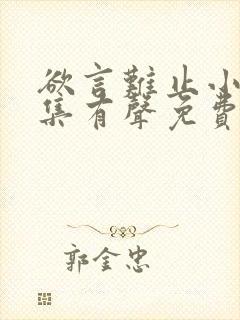 欲言難止小
集有聲免費
郭金忠